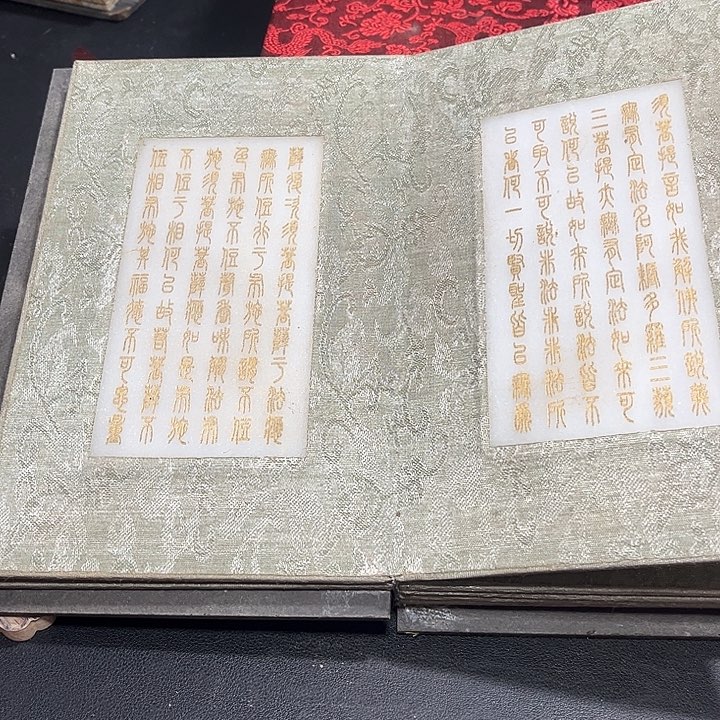 須菩提言如我解佛所說義
無有定法名阿耨多羅三藐
三菩提亦無有定法如來可
說何以故如來所說法皆不
可取不可說非法非非法所
以者何一切賢聖皆以無為
薩復次須菩提菩薩于法應
無所住行于布施所謂不住
色布施不住聲香味觸法布
施須菩提菩薩應如是布施
不住于相何以故若菩薩不
住相布施其福德不可思量